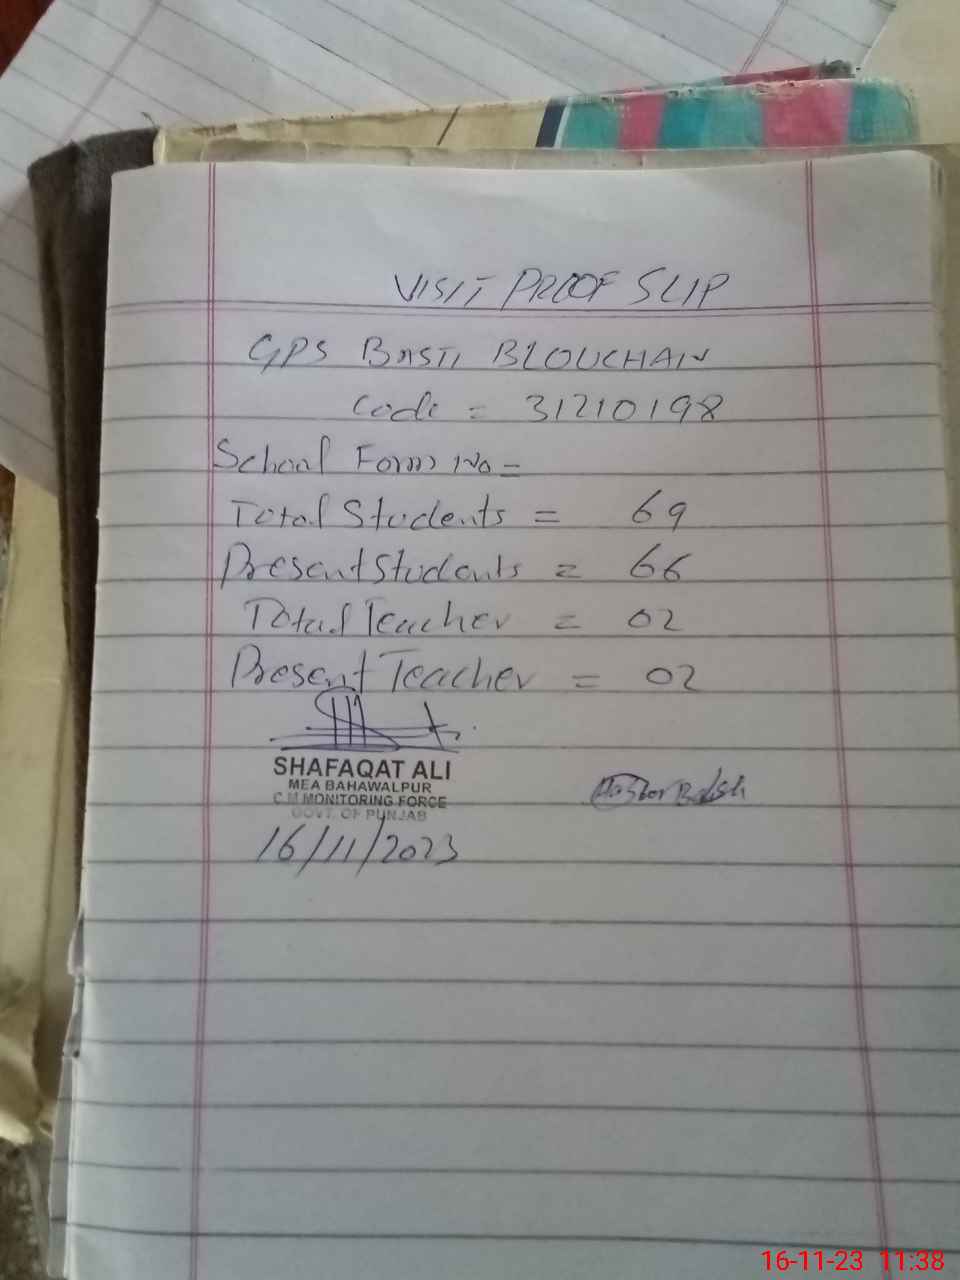 VISIT PROOF SLIP
GPS BASTI BLOUCHAN
Code = 31210198
School Form No =
Total Students = 69
Present Students = 66
Total Teacher = 02
Present Teacher = 02
SHAFAQAT ALI
MEA BAHAWALPUR
C.M MONITORING FORCE
GOVT. OF PUNJAB
16/11/2023
16-11-23 11:38